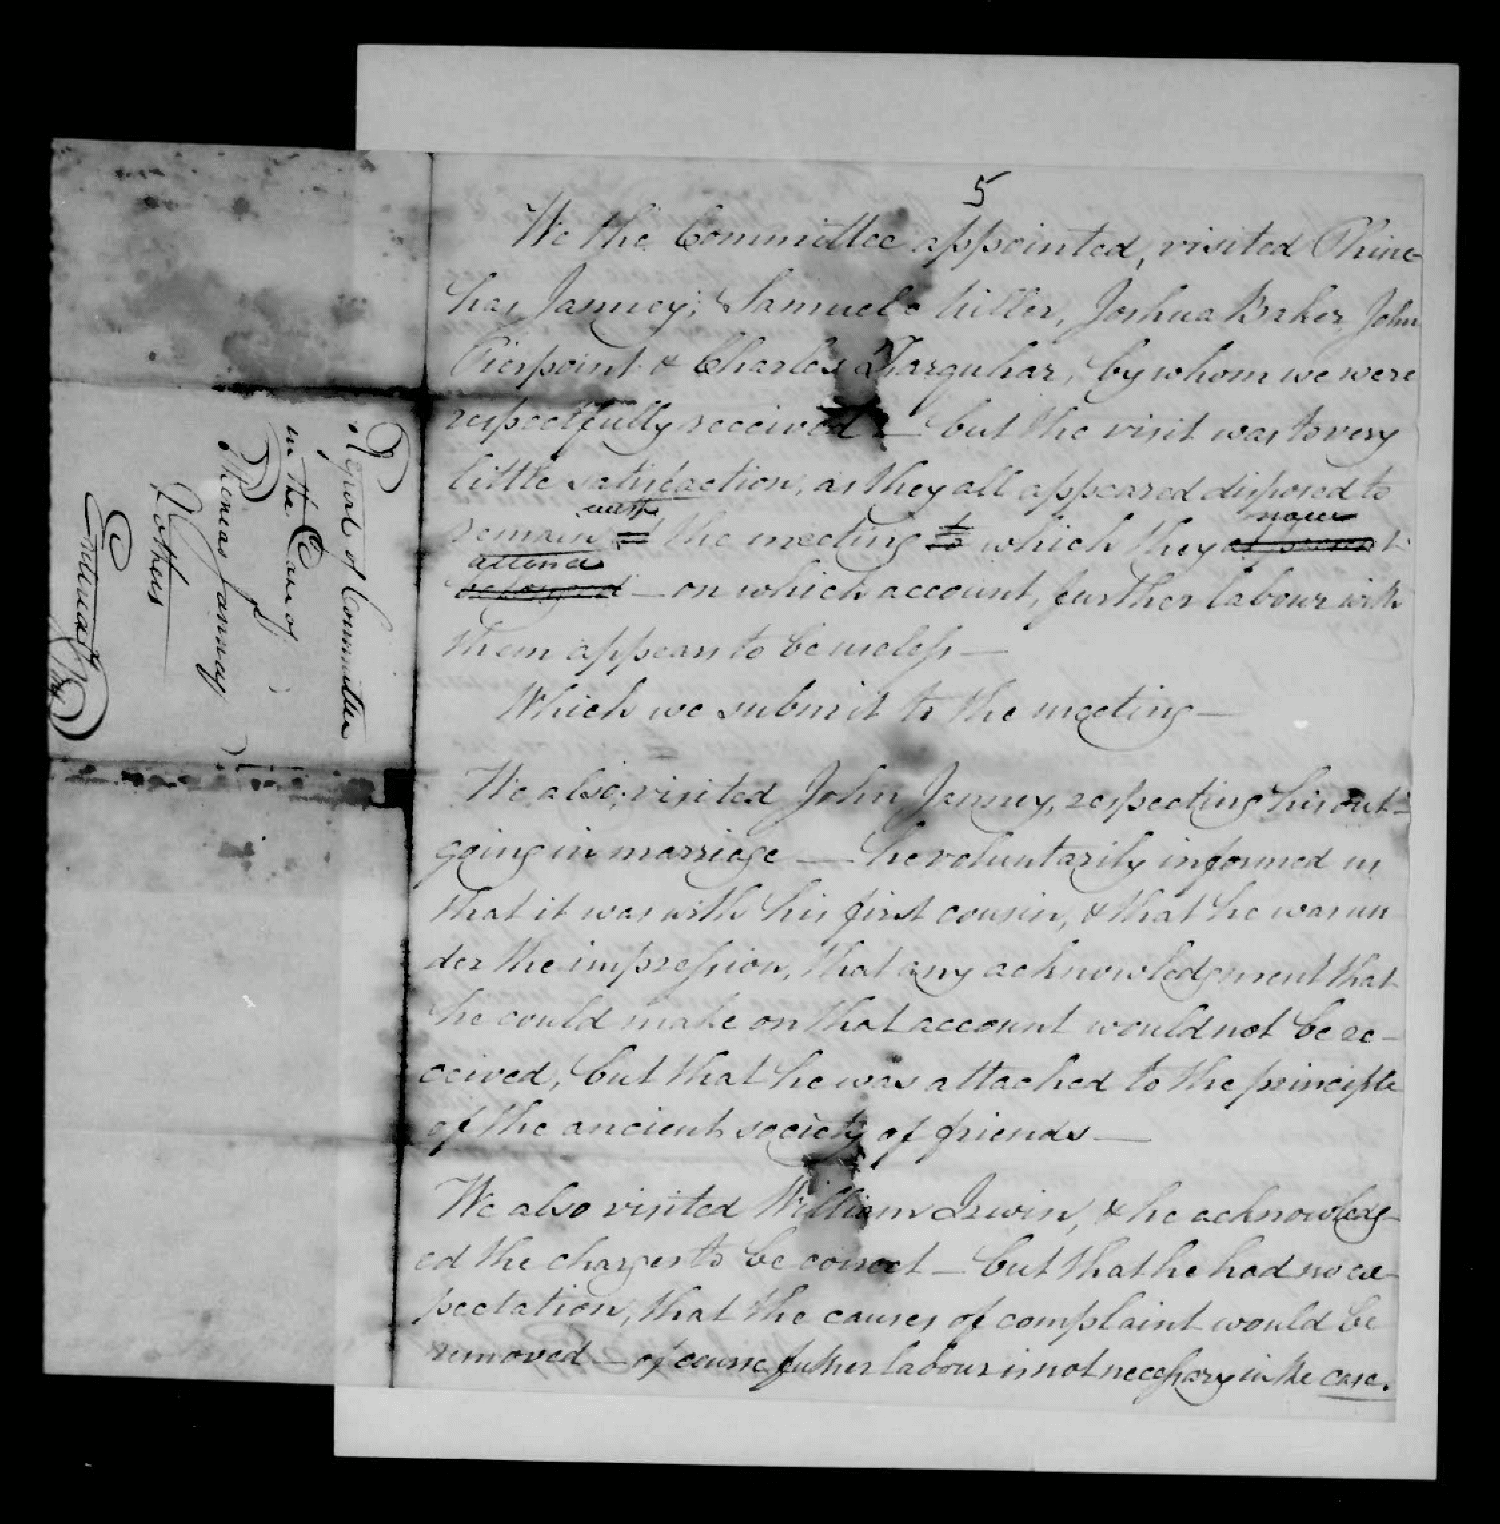 5
We the Committee appointed, visited Phine-
has Janney, Samuel Miller, Joshua Baker, John
Pierpoint & Charles Farquhar, by whom we were
respectfully received — but the visit was to very
little satisfaction, as they all appeared disposed to
remain with the meeting which they now
attend — on which account, further labour with
them appears to be useless —
Which we submit to the meeting —
We also visited John Janney, respecting his out-
going in marriage — he voluntarily informed us
that it was with his first cousin, & that he was un
der the impression, that any acknowledgment that
he could make on that account would not be re-
ceived, but that he was attached to the principle
of the ancient society of friends —
We also visited William Irwin, & he acknowledg-
ed the charges to be correct — but that he had no ex-
pectation, that the causes of complaint would be
removed — of course further labour is not necessary in the case.
Report of Committee
in the Case of
Phineas Janney
& others
Entered